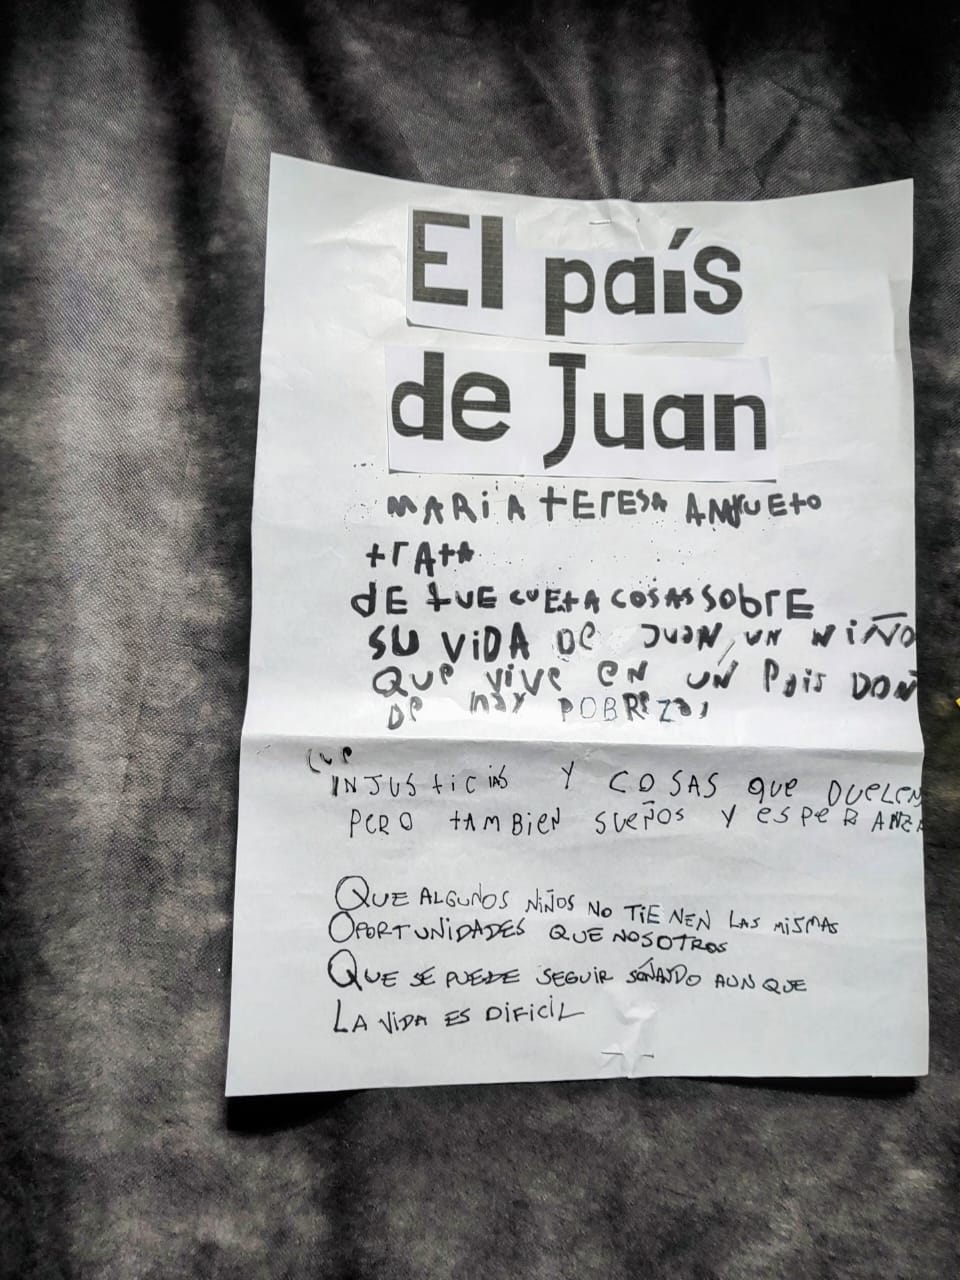 El país
de Juan
MARIA tERESA ANdrUEto
trAtA
dE tUE CUEtA COSAS SObrE
SU ViDA De JUAN, UN NIÑO
QUe viVe eN UN PAis DON
De hay POBREZA,
que
INJUSticiAS Y COSAS QUe DUeLeN
PeRO tAMBieN SUeÑOS Y eSPeRANZA
QUE ALGUNOS NIÑOS NO TIENEN LAS MISMAS
OPORTUNIDADES QUE NOSOTROS
QUE SE PUEDE SEGUIR SOÑANDO AUNQUE
LA VIDA ES DIFICIL